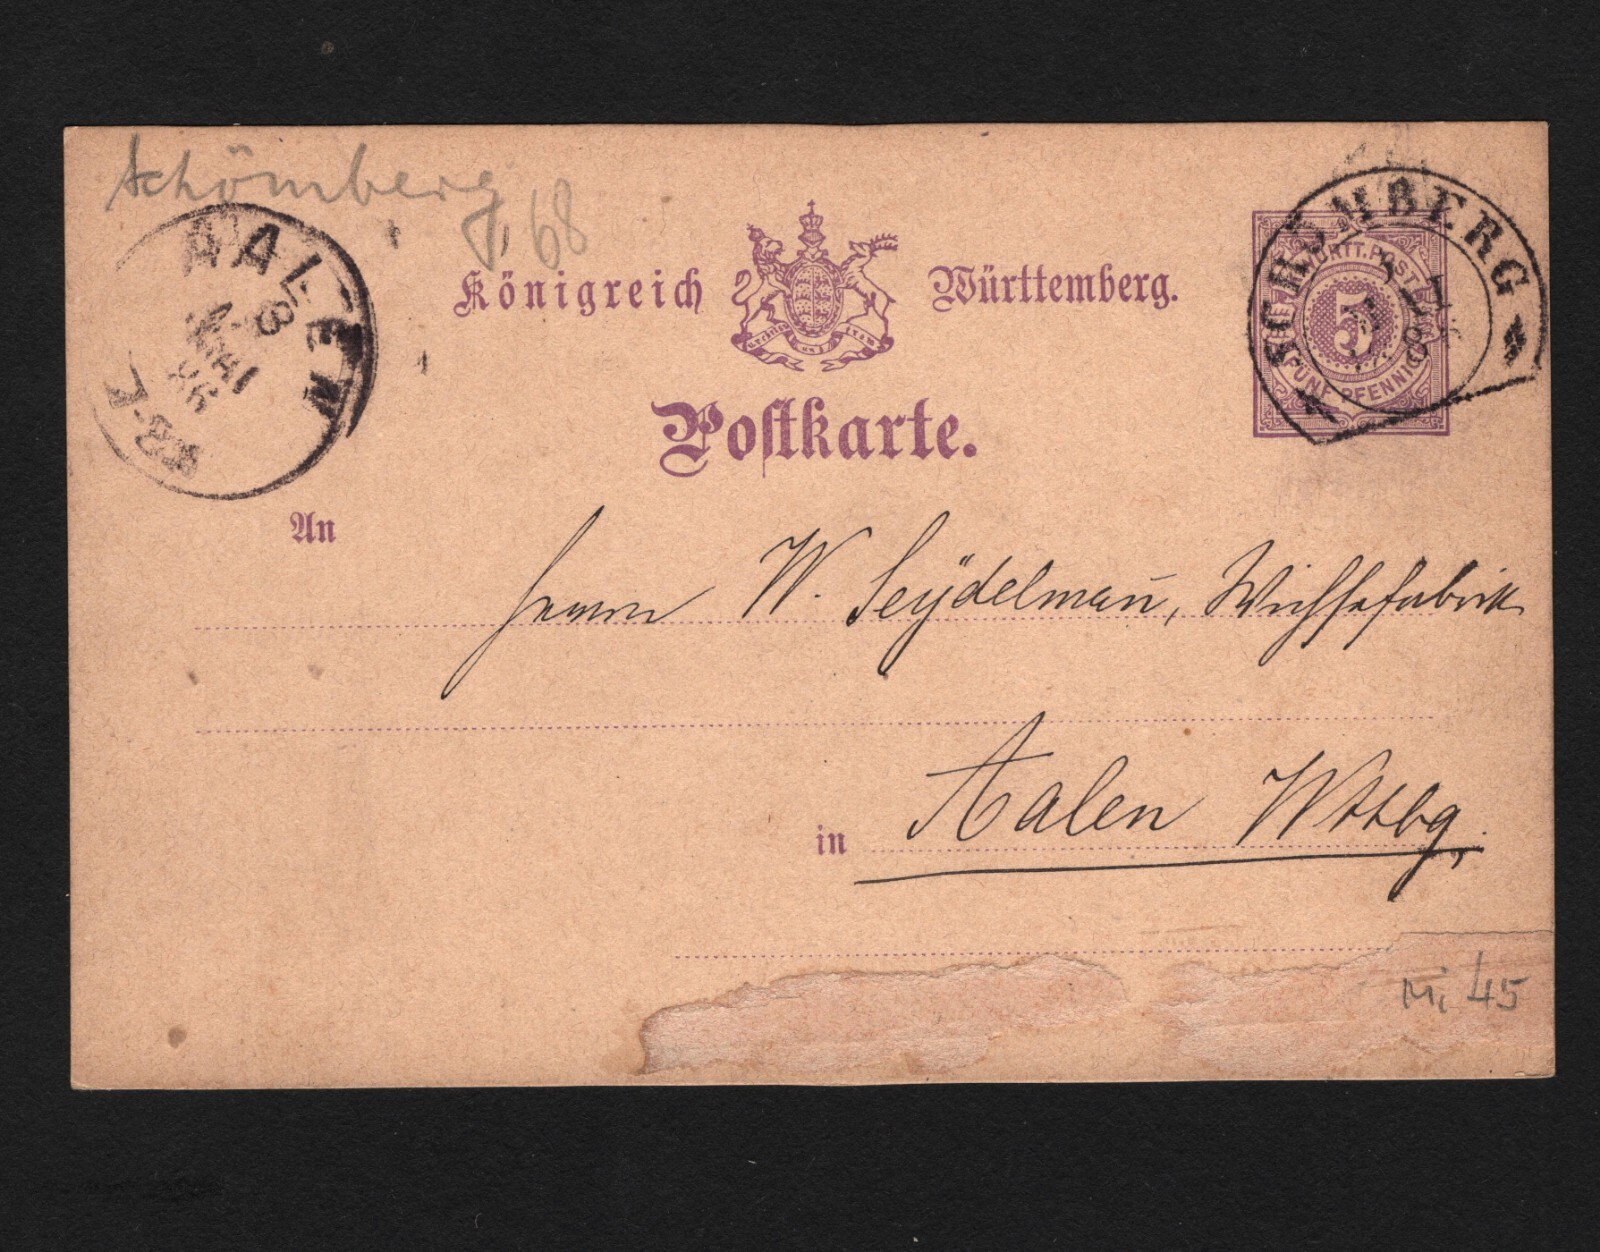 Schömberg
68
AALEN
8
MAI
7-8
Königreich Württemberg.
SCHÖMBERG
WÜRTT. POST
5
FÜNF PFENNIG
Postkarte.
An
Herrn W. Seÿdelman̄, Wichsefabrik
in Aalen Wttbg.
Mi 45